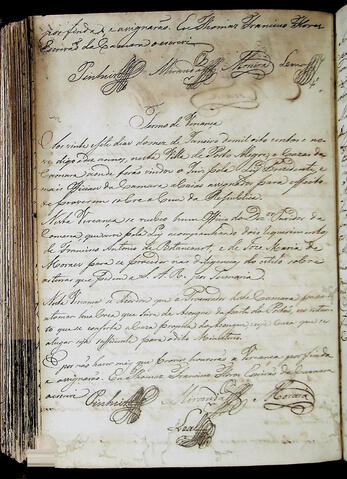 por finda e assignarão. Eu Thomaz Francisco Flores
Escrivão da Camara o escrevi
Pinheiro Miranda Moura Leal
Termo de Vereança
Aos vinte e sete dias do mez de Janeiro de mil oito centos e no
ve digo des annos, nesta Villa de Porto Alegre e Cazas da
Camara onde forão vindos o Juiz pela Ley Prezidente, e
mais Officiaes da Camara abaixo assignados para effeito
de proverem sobre o bem da Republica.
Nesta Vereança se recebeo hum Officio do Dr. Ouvidor da
Comarca, acompanhando dois requerimentos
de Francisco Antonio de Betancourt, e de Joze Maria de
Moraes para se proceder nas deligencias do estilo sobre
as terras que pedem a S. A. R. por Sesmaria.
Nesta Vereança se accordou que o Procurador desta Camara
huma Caza que sirva de Asougue
to que se conserta a Caza propria do Asougue, cuja Caza que se
alugar seja sufficiente para o dito Ministerio.
E por não haver mais que prover houverão a Vereança por finda
e assignarão. Eu Thomaz Francisco Flores Escrivão da Camara
o escrevi
Pinheiro Miranda Moura
Leal